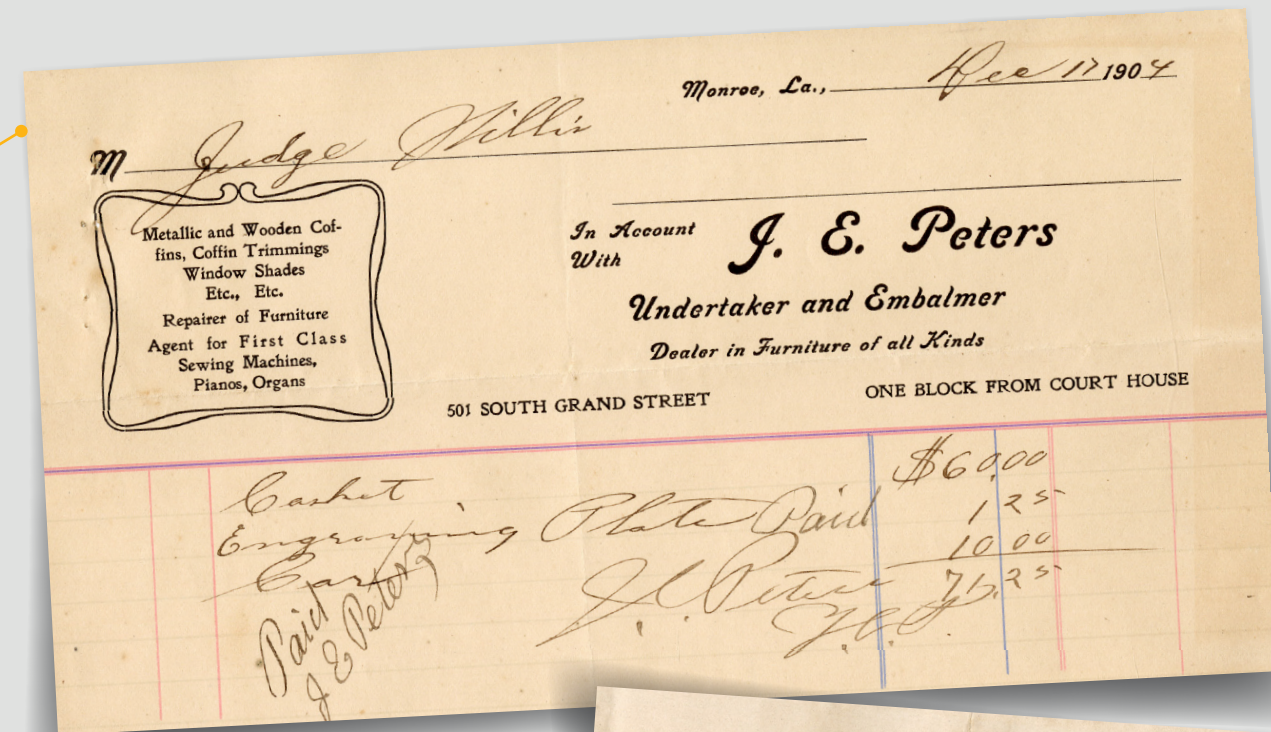 Monroe, La., Dec 17 1904
M Judge Willis
Metallic and Wooden Cof-
fins, Coffin Trimmings
Window Shades
Etc., Etc.
Repairer of Furniture
Agent for First Class
Sewing Machines,
Pianos, Organs
In Account
With
J. E. Peters
Undertaker and Embalmer
Dealer in Furniture of all Kinds
501 SOUTH GRAND STREET
ONE BLOCK FROM COURT HOUSE
Casket $60.00
Engraving Plate Paid 1 25
10 00
J. E. Peters 71.25
Paid
J E Peters